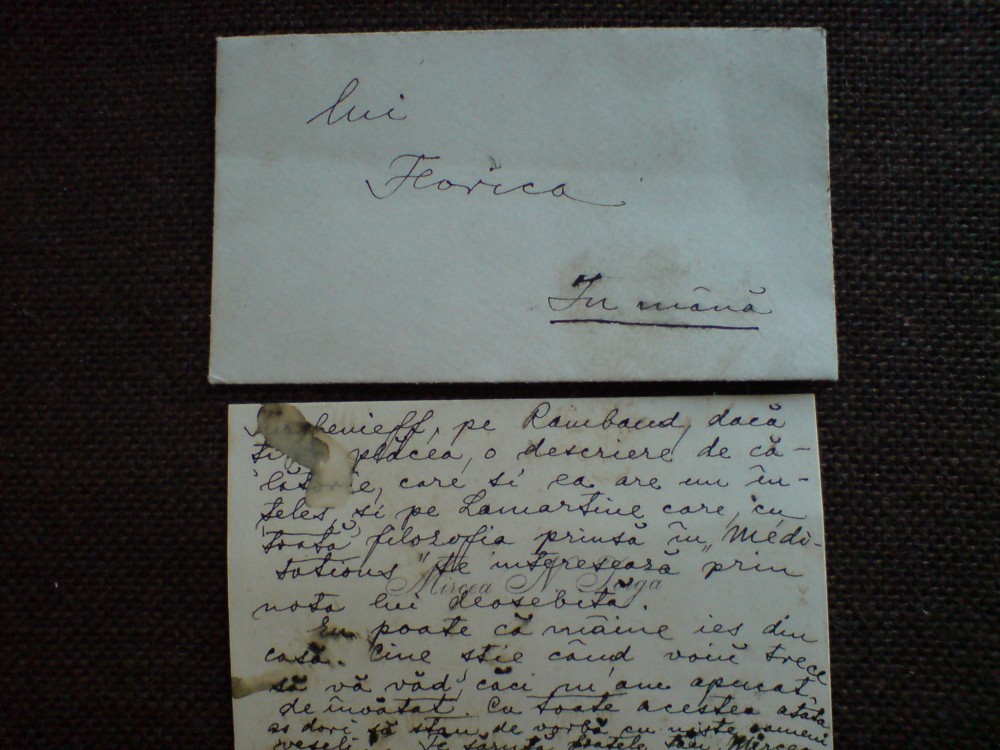 lui
Florica
În mână
pe Rambaud, dacă
ți plăcea, o descriere de că-
lătorie, care și ea are un în-
țeles, și pe Lamartine care, cu
toată filozofia prinsă în „Médi-
tations" te interesează prin
Mircea N. Iorga
nota lui deosebită.
Eu poate că mâine ies din
casă. Cine știe când voiŭ trece
să vă văd, căci m'am apucat
de învățat. Cu toate acestea atâta
aș dori să stau de vorbă cu niște oameni
veseli. Te sărută Mircea